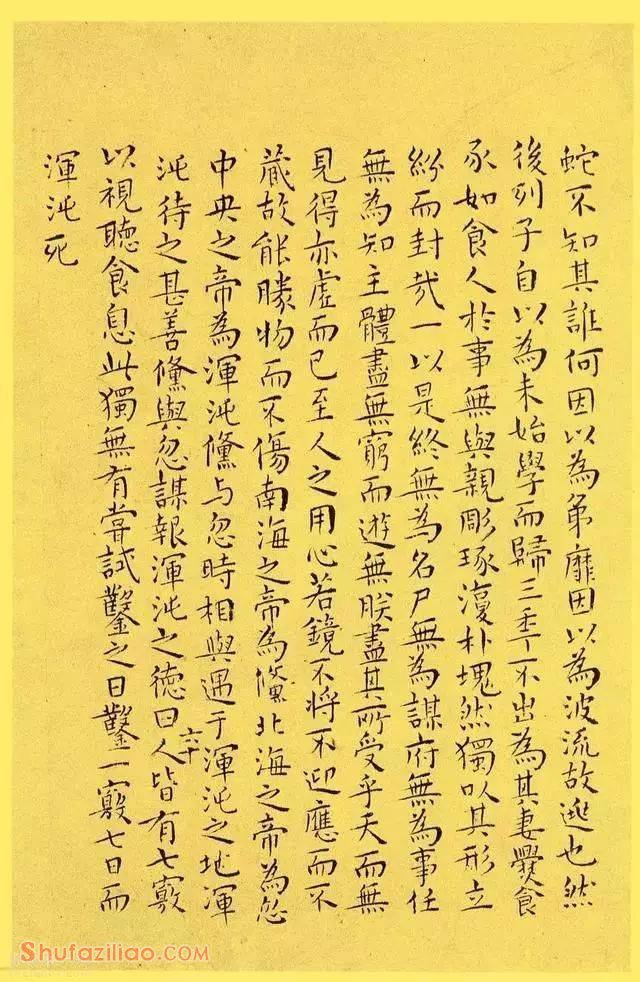 蛇不知其誰何因以為弟靡因以為波流故逃也然
後列子自以為未始學而歸三季不出為其妻爨食
豕如食人於事無與親彫琢復朴塊然獨以其形立
紛而封哉一以是終無為名尸無為謀府無為事任
無為知主體盡無窮而遊無朕盡其所受乎天而無
見得亦虛而已至人之用心若鏡不將不迎應而不
藏故能勝物而不傷南海之帝為儵北海之帝為忽
中央之帝為渾沌儵与忽時相與遇于渾沌之地渾
沌待之甚善儵與忽謀報渾沌之德曰人皆有七竅
六十
以視聽食息此獨無有嘗試鑿之日鑿一竅七日而
渾沌死
Shufaziliao.com